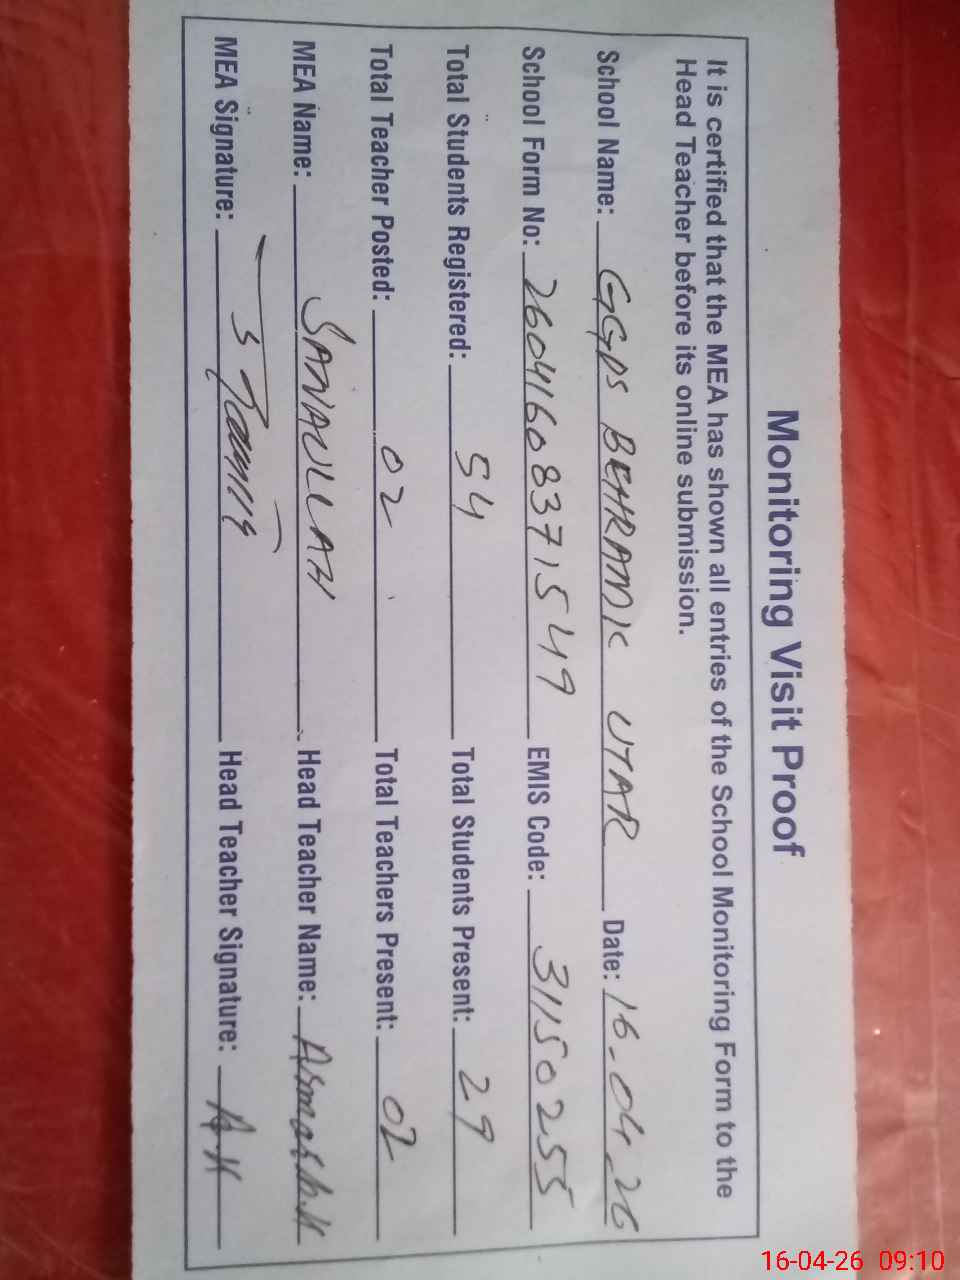 Monitoring Visit Proof
It is certified that the MEA has shown all entries of the School Monitoring Form to the
Head Teacher before its online submission.
School Name: GGPS BEHRAMK UTAR Date: 16-04-26
School Form No: 26041608371549 EMIS Code: 31150255
Total Students Registered: 54 Total Students Present: 29
Total Teacher Posted: 02 Total Teachers Present: 02
MEA Name: SANAULLAH Head Teacher Name:
MEA Signature: Head Teacher Signature: A.H
16-04-26 09:10